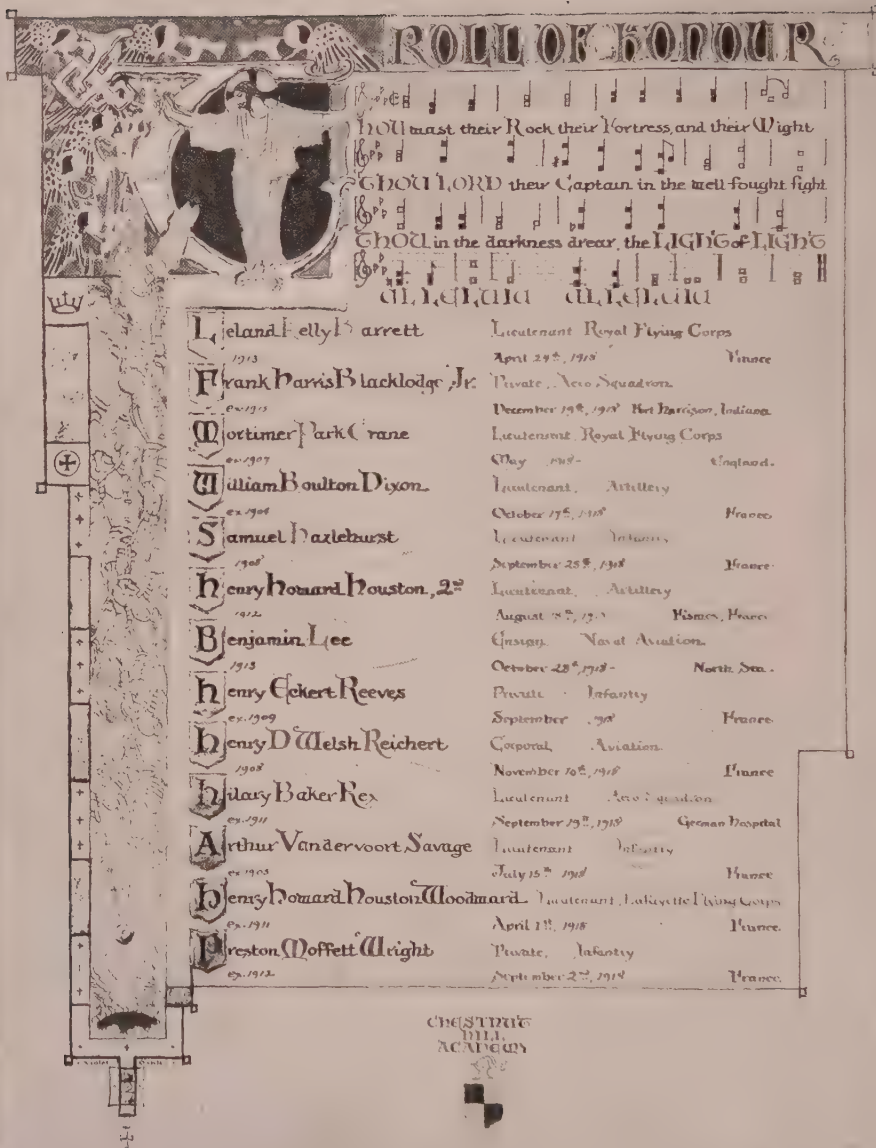 ROLL OF HONOUR
THOU wast their Rock their Fortress, and their Might
THOU LORD their Captain in the well fought fight
THOU in the darkness drear, the LIGHT of LIGHT
ALLELUIA ALLELUIA
Leland Kelly Barrett Lieutenant Royal Flying Corps
1913 April 29th, 1918 France
Frank Harris Blacklodge, Jr. Private, Aero Squadron
ex. December 19th, 1918 Fort Harrison, Indiana
Mortimer Park Crane Lieutenant Royal Flying Corps
ex. 1907 May 1918 England.
William Boulton Dixon Lieutenant, Artillery
ex. October 17th, 1918 France
Samuel Hazlehurst Lieutenant Infantry
1908 September 28th, 1918 France
Henry Howard Houston, 2nd Lieutenant, Artillery
1912 August Fismes, France
Benjamin Lee Ensign Naval Aviation
1913 October 28th, 1918- North Sea.
Henry Eckert Reeves Private Infantry
ex. 1909 September 1918 France
Henry D Welsh Reichert Corporal, Aviation
1908 November 10th, 1918 France
Hilary Baker Rex Lieutenant Aero Squadron
ex. 1911 September 19th, 1918 German Hospital
Arthur Vandervoort Savage Lieutenant Infantry
ex 1903 July 15th 1918 France
Henry Howard Houston Woodward Lieutenant, Lafayette Flying Corps
ex. 1911 April 1st, 1918 France
Preston Moffett Wright Private, Infantry
ex. 1912 September 2nd, 1918 France
CHESTNUT
HILL
ACADEMY